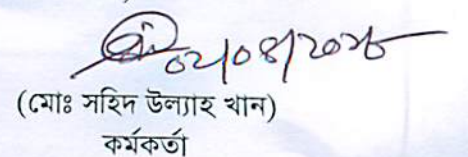 ০২/০৪/২০২৬
(মোঃ সহিদ উল্যাহ খান)
কর্মকর্তা